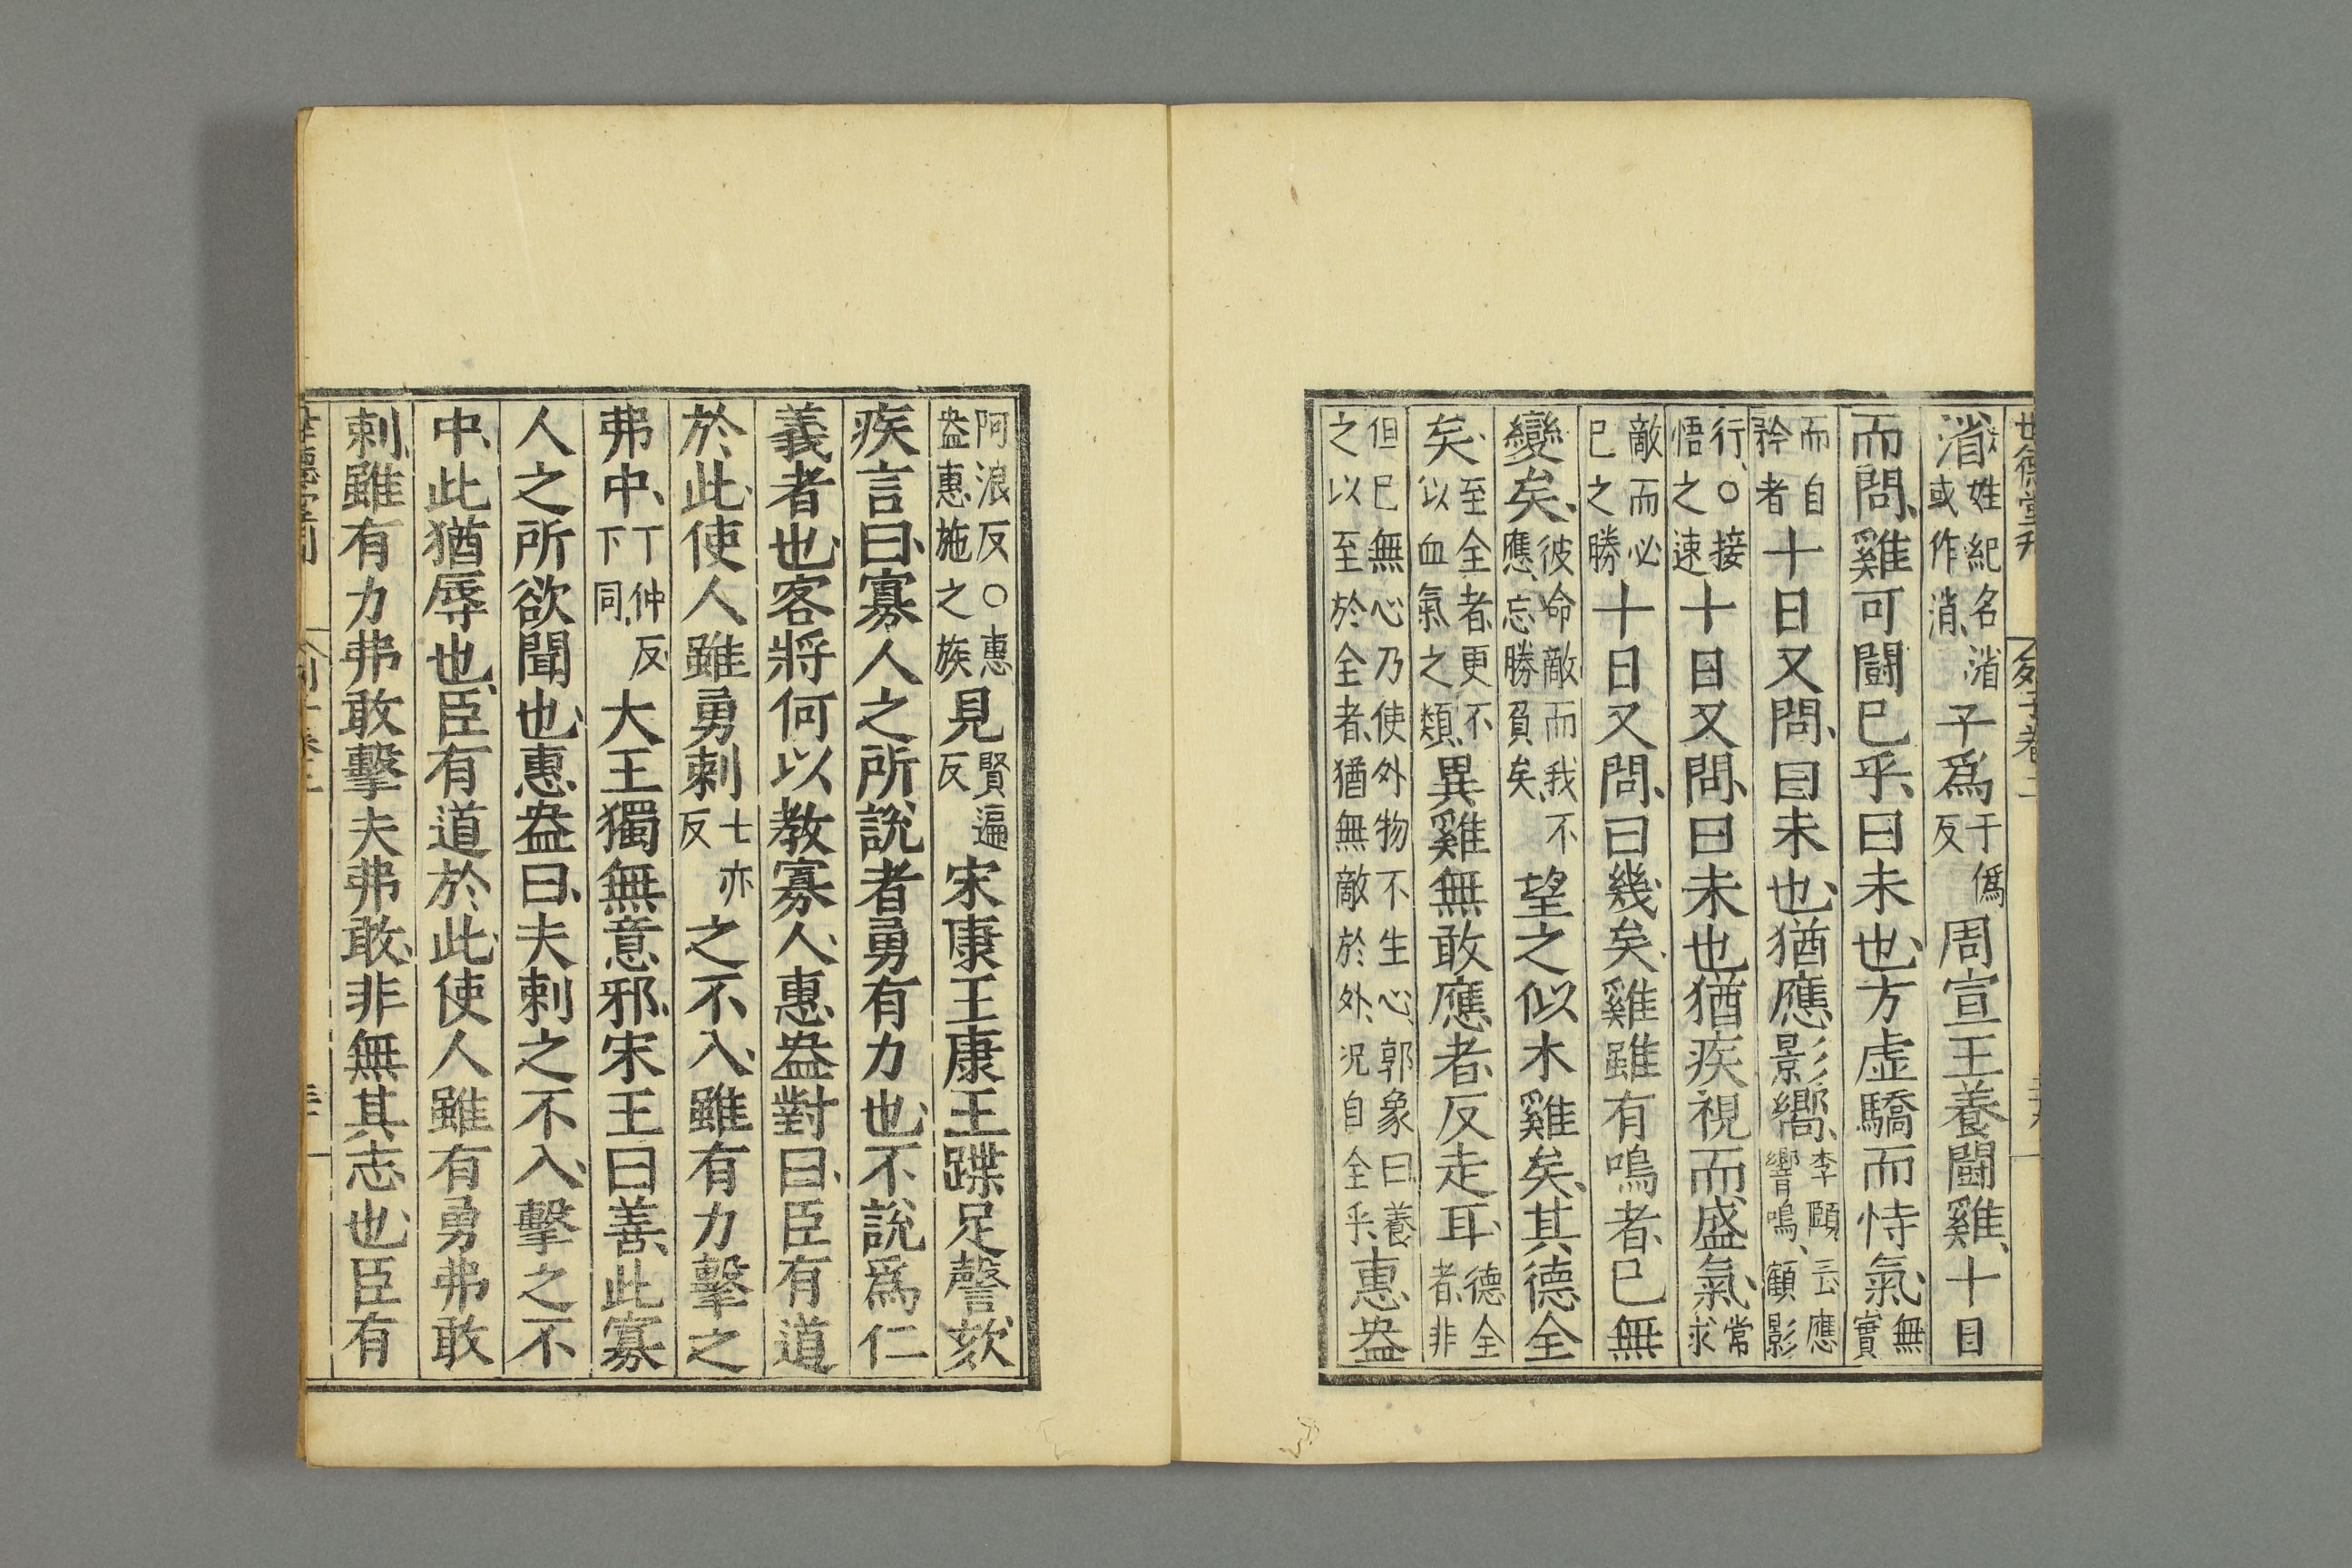 世德堂刊 列子卷二
渻姓紀名渻或作消、子爲于僞反周宣王養鬪雞、十日
而問、雞可鬪已乎、曰未也、方虛驕而恃氣、無實
而自矜者十日又問、曰未也、猶應影嚮、李頤云應響鳴、顧影
行、○接悟之速十日又問、曰未也猶疾視而盛氣、常求
敵而必已之勝十日又問、曰幾矣、雞雖有鳴者、已無
變矣、彼命敵而我不應、忘勝負矣、望之似木雞矣、其德全
矣、至全者、更不似血氣之類、異雞無敢應者、反走耳、德全者、非
但已無心、乃使外物不生心、郭象曰、養之以至於全者、猶無敵於外、況自全乎、惠盎
阿浪反○惠盎惠施之族見賢遍反宋康王康王蹀足謦欬
疾言曰、寡人之所說者勇有力也、不說爲仁
義者也、客將何以教寡人、惠盎對曰、臣有道
於此、使人雖勇刺七亦反之不入、雖有力擊之
弗中、丁仲反下同、大王獨無意邪、宋王曰善、此寡
人之所欲聞也、惠盎曰、夫刺之不入、擊之不
中、此猶辱也、臣有道於此、使人雖有勇弗敢
刺、雖有力弗敢擊夫弗敢、非無其志也、臣有